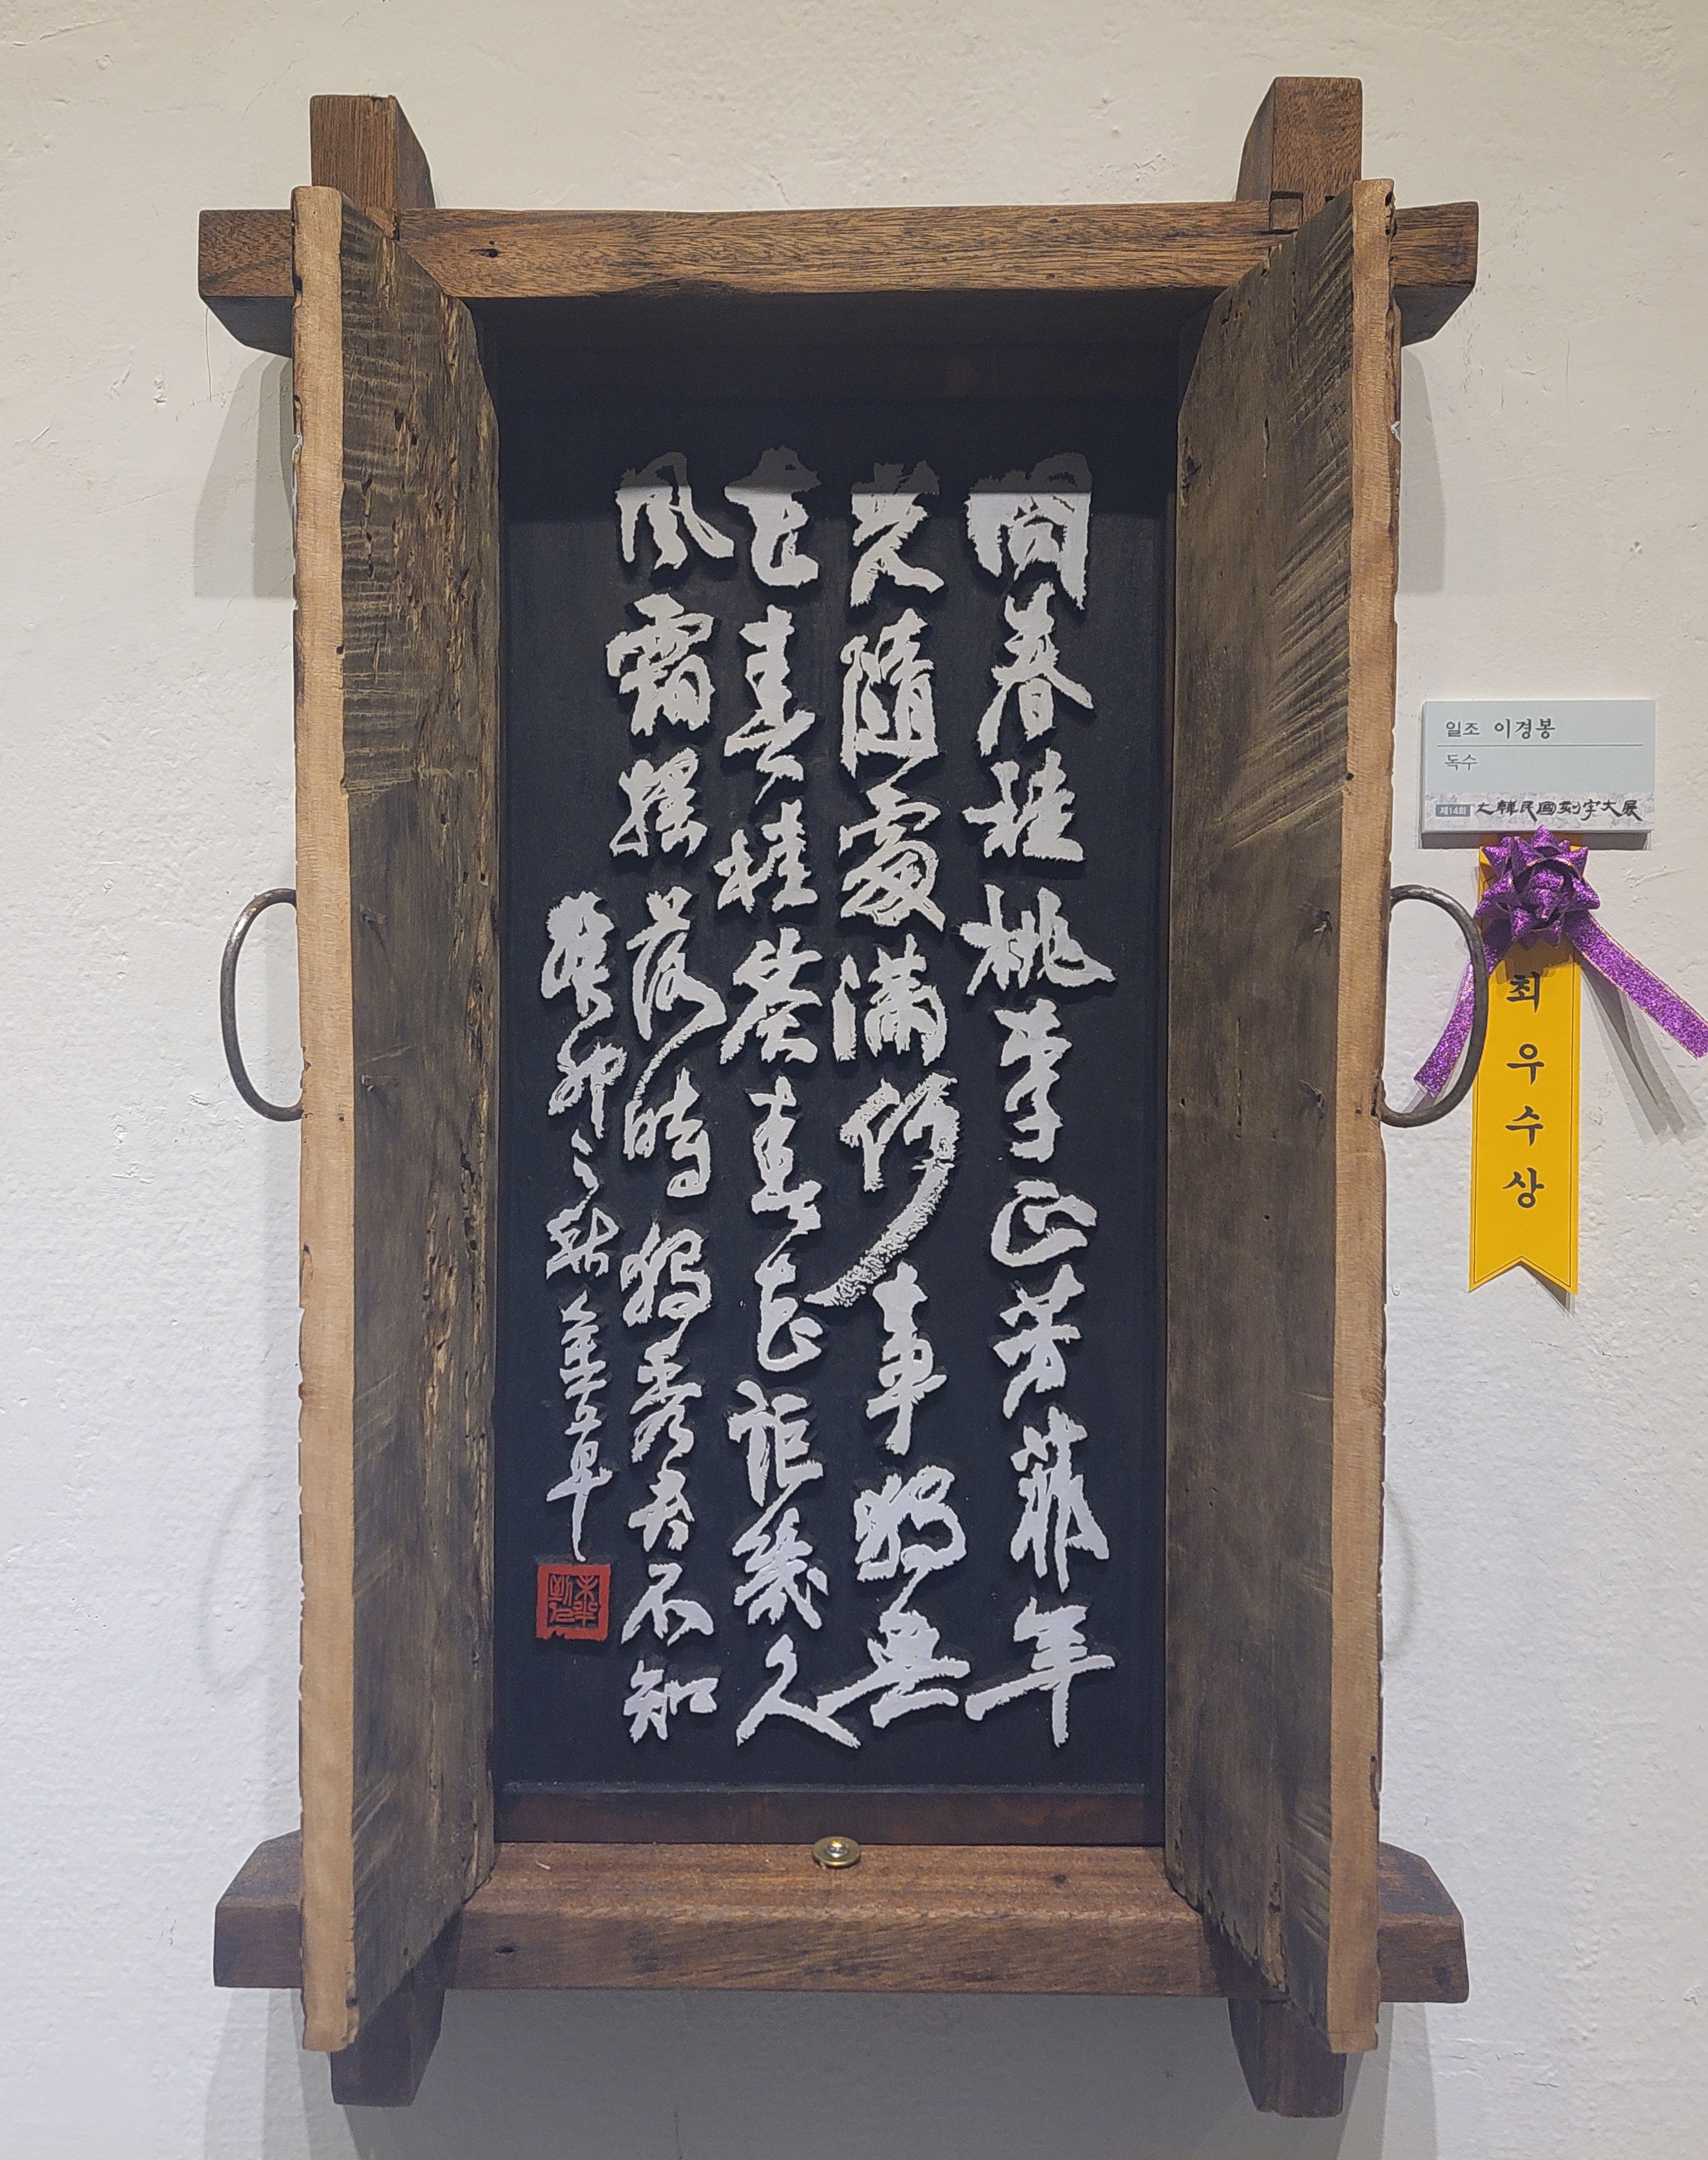 問春桂桃李正芳菲年
光隨處滿何事獨無
花春桂答春花詎幾久
風霜搖落時獨秀君不知
癸卯之秋
일조 이경봉
독수
제14회 大韓民國刻字大展
최우수상